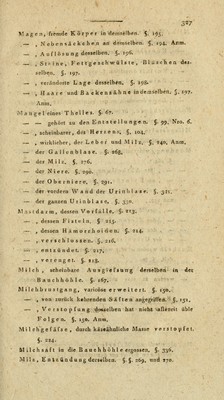 327
Magen, fremde Körper in demselben. §. 195.
— , Nebensäckchen an demselben. §. 194. Anm.
— , Auflösung desselben. §. 196.
— , Steine, Fettgeschwülste, Bläschen des-
selben. §. 197.
— , veränderte Lage desselben. §. 198.
— , Haare und Backenzähne in demselben. §. 197.
Anm.
Mangel eines Theiles. §. 67.
— — gehört zu den Entstellungen. §. 99. Nro. 6.
— , scheinbarer, des Herzens, §. 104.
— , wirklicher, der Leber und Milz. §. 240. Anm.
— der Gallenblase. §. 268.
— der Milz. §. 276.
— der Niere. §. 290.
— der Oberniere. §. 291.
— der vordern Wand der Urinblase. §. 321.
— der ganzen Urinblase. §. 330.
Mastdarm, dessen Vorfälle. §. 213.
— , dessen Fisteln. §. 213.
— , dessen Hämorrhoiden. §. 214.
— , verschlossen. §. 216.
— , entzündet. §. 217.
— , verengt. §. 218.
Milch, scheinbare Ausgiefsung derselben in der
Bauchhöhle. §. 167.
Milchbrustgang, varicöse erweitert. §. 150.
— , von zurück kehrenden Säften angegriffen. §. 151.
— , Verstopfung desselben hat nicht allezeit üble
Folgen. §. 150. Anm.
Milchgefäfse, durch käseähnliche Masse verstopfet.
§. 224.
Milchsaft in die Bauchhöhle ergossen. §. 336.
Milz, Entzündung derselben. §§. 269. und 270.